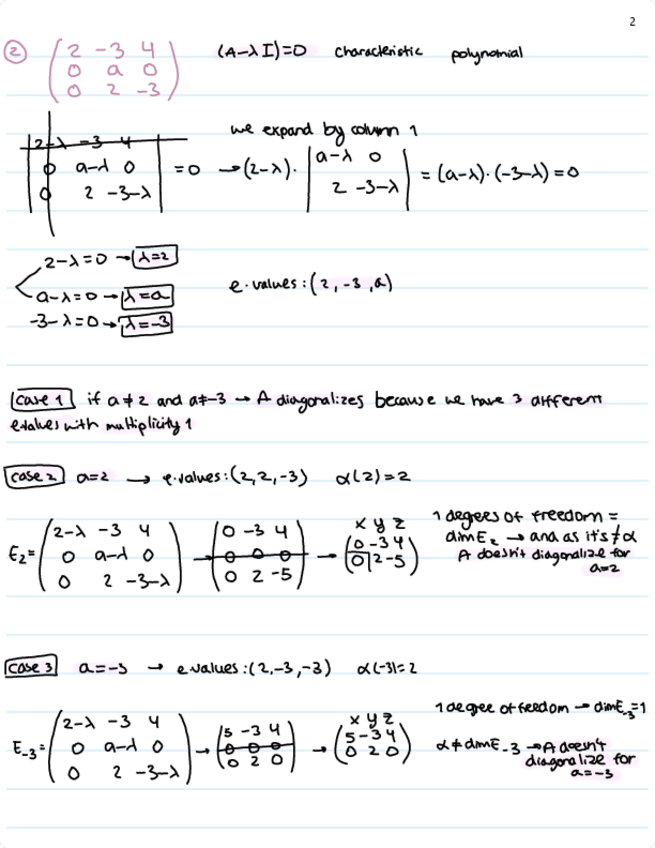 2
② (2 -3 4 (A-λI)=0 characteristic polynomial
0 a 0
0 2 -3)
we expand by column 1
|2-λ -3 4
0 a-λ 0
0 2 -3-λ| =0 → (2-λ)· |a-λ 0
2 -3-λ| = (a-λ)·(-3-λ)=0
2-λ=0 → λ=2
a-λ=0 → λ=a
-3-λ=0 → λ=-3
e.values: (2, -3, a)
case 1 if a≠2 and a≠-3 → A diagonalizes because we have 3 different
evalues with multiplicity 1
case 2 a=2 → e.values: (2,2,-3) α(2)=2
E₂= (2-λ -3 4
0 a-λ 0
0 2 -3-λ) → (0 -3 4
0 0 0
0 2 -5) → x y z
(0 -3 4
0 2 -5)
1 degrees of freedom =
dimE₂ → and as it's ≠α
A doesn't diagonalize for
a=2
case 3 a=-3 → e.values: (2,-3,-3) α(-3)=2
E₋₃= (2-λ -3 4
0 a-λ 0
0 2 -3-λ) → (5 -3 4
0 0 0
0 2 0) → x y z
(5 -3 4
0 2 0)
1 degree of feedom → dimE₋₃=1
α≠dimE₋₃ → A doesn't
diagonalize for
a=-3